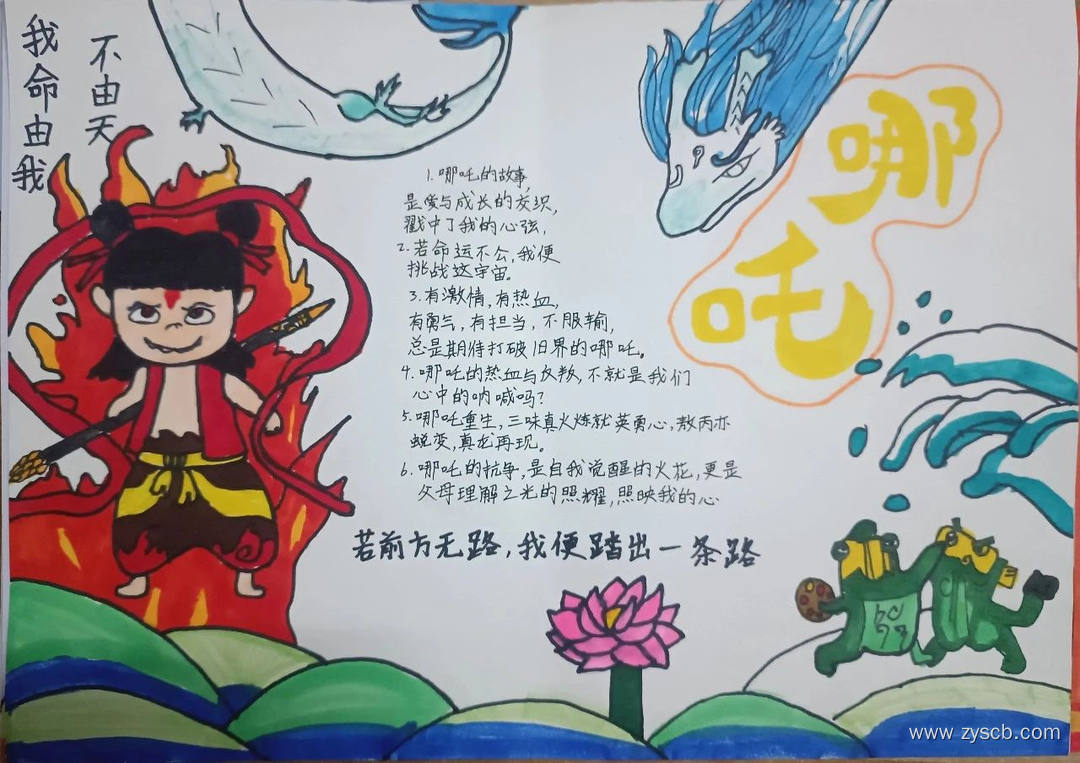 我命由我
不由天
哪吒
1.哪吒的故事,
是爱与成长的交织,
戳中了我的心弦,
2.若命运不公,我便
挑战这宇宙。
3.有激情,有热血,
有勇气,有担当,不服输,
总是期待打破旧界的哪吒。
4.哪吒的热血与反叛,不就是我们
心中的呐喊吗?
5.哪吒重生,三昧真火炼就英勇心,敖丙亦
蜕变,真龙再现。
6.哪吒的抗争,是自我觉醒的火花,更是
父母理解之光的照耀,照映我的心
若前方无路,我便踏出一条路
www.zyscb.com